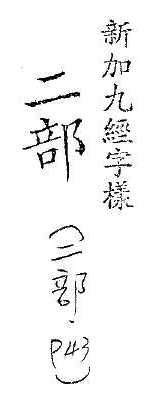 新加九經字樣
二部
(二部·P43)